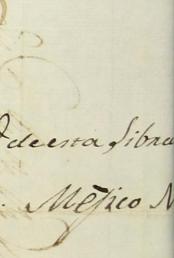 de esta libra
Mexico N